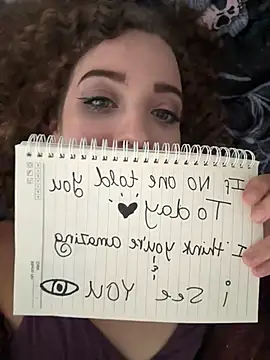 If No one told you
Today
I think you're amazing
&
i see you